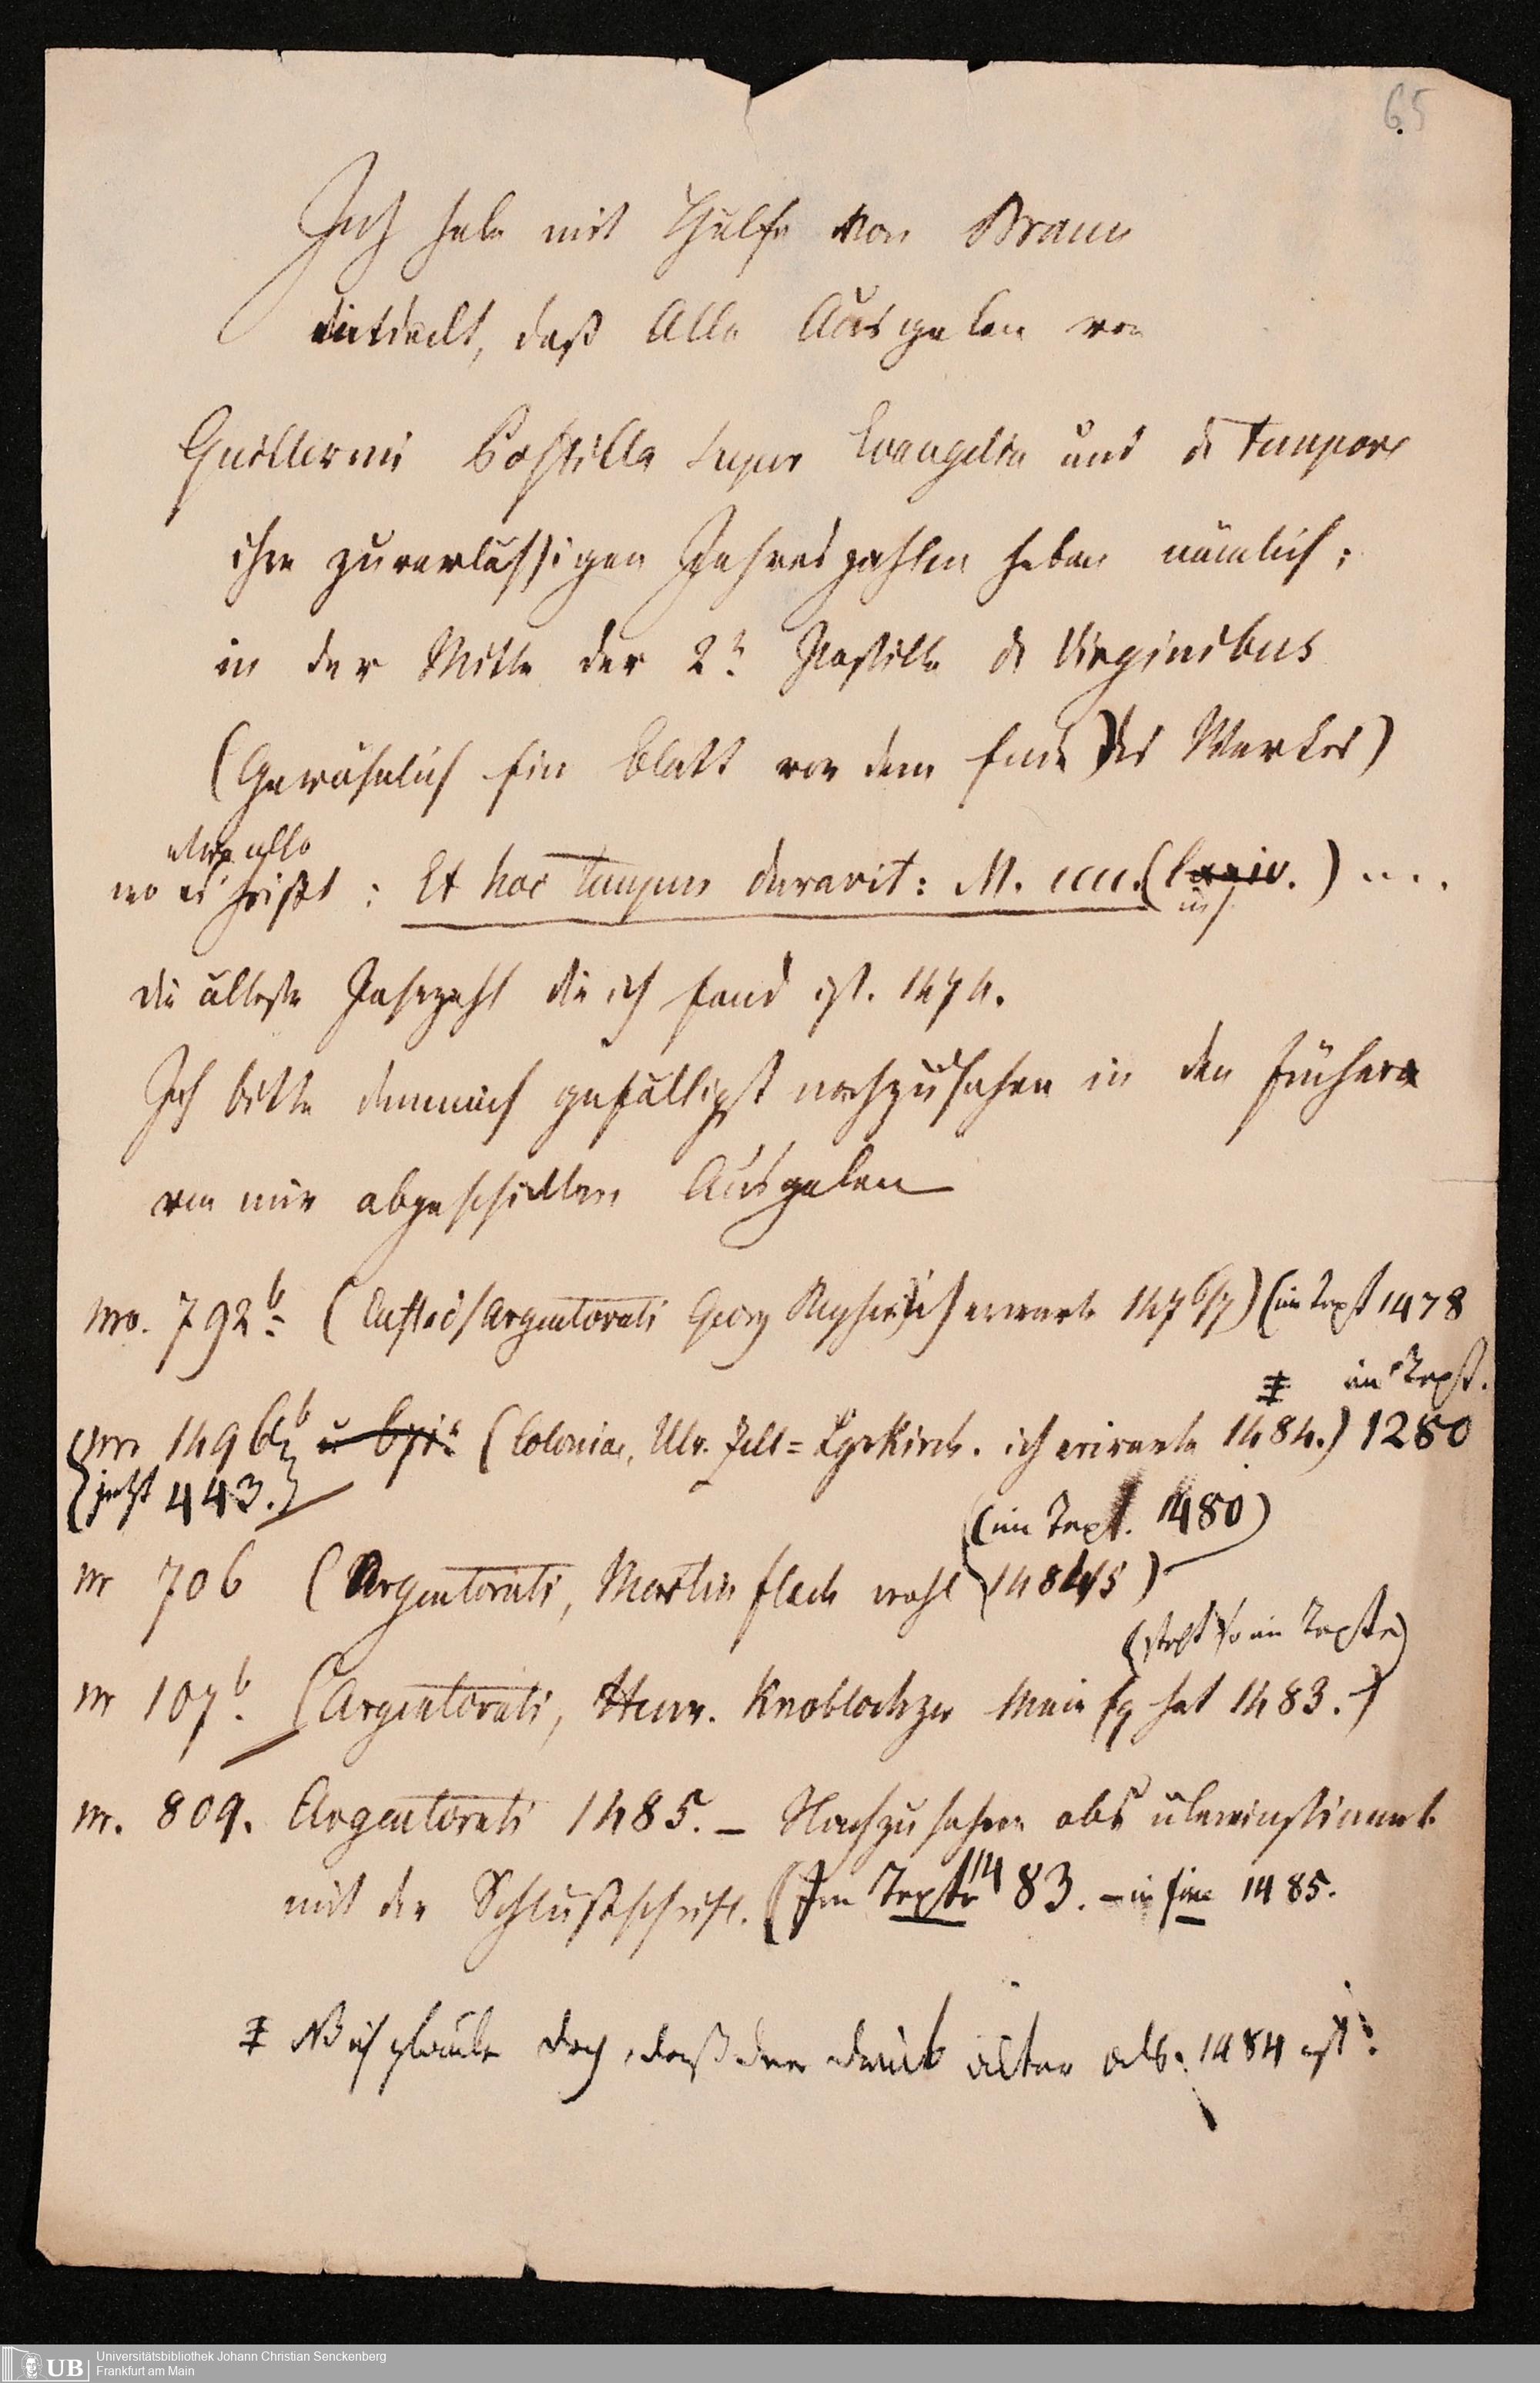 65
Ich habe mit Hülfe von Braun
entdeckt, daß Alle Ausgaben von
Guillermi Postilla super Evangelia und de tempore
ihre zuverlässigen Jahreszahlen haben nämlich:
in der Mitte der 2n Postille de Virginibus
(Gewöhnlich Ein Blatt vor dem Ende des Werkes)
wo es heißt: Et hoc tempus duravit: M. cccc. (lxxiv.) ...
die älteste Jahrzahl die ich fand ist 1474.
Ich bitte demnach gefälligst nachzusehen in den frühern
von mir abgeschickten Ausgaben
Nro. 792b (Argentorati Georg Reyser ich erwarte 1476/7) (im Text 1478
‡ im Text.
Nr 1496b (Coloniae, Ulr. Zell = Lyskirch. ich erwarte 1484.) 1280
(jetzt 443.)
(im Text. 1480)
nr 706 (Argentorati, Martin Flach wohl 1484/5)
(steht so im Texte)
nr 107b. (Argentorati, Henr. Knoblochzer Mein hat 1483.)
nr. 809. Argentorati 1485. – Nachzusehen obs übereinstimmt
mit der Schlußschrift. (Im Texte 1483. – in fine 1485.
‡ NB ich glaube doch, daß der Druck älter als 1484 ist.
UB Universitätsbibliothek Johann Christian Senckenberg
Frankfurt am Main